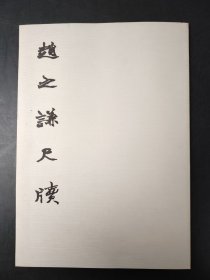 趙之謙尺牘